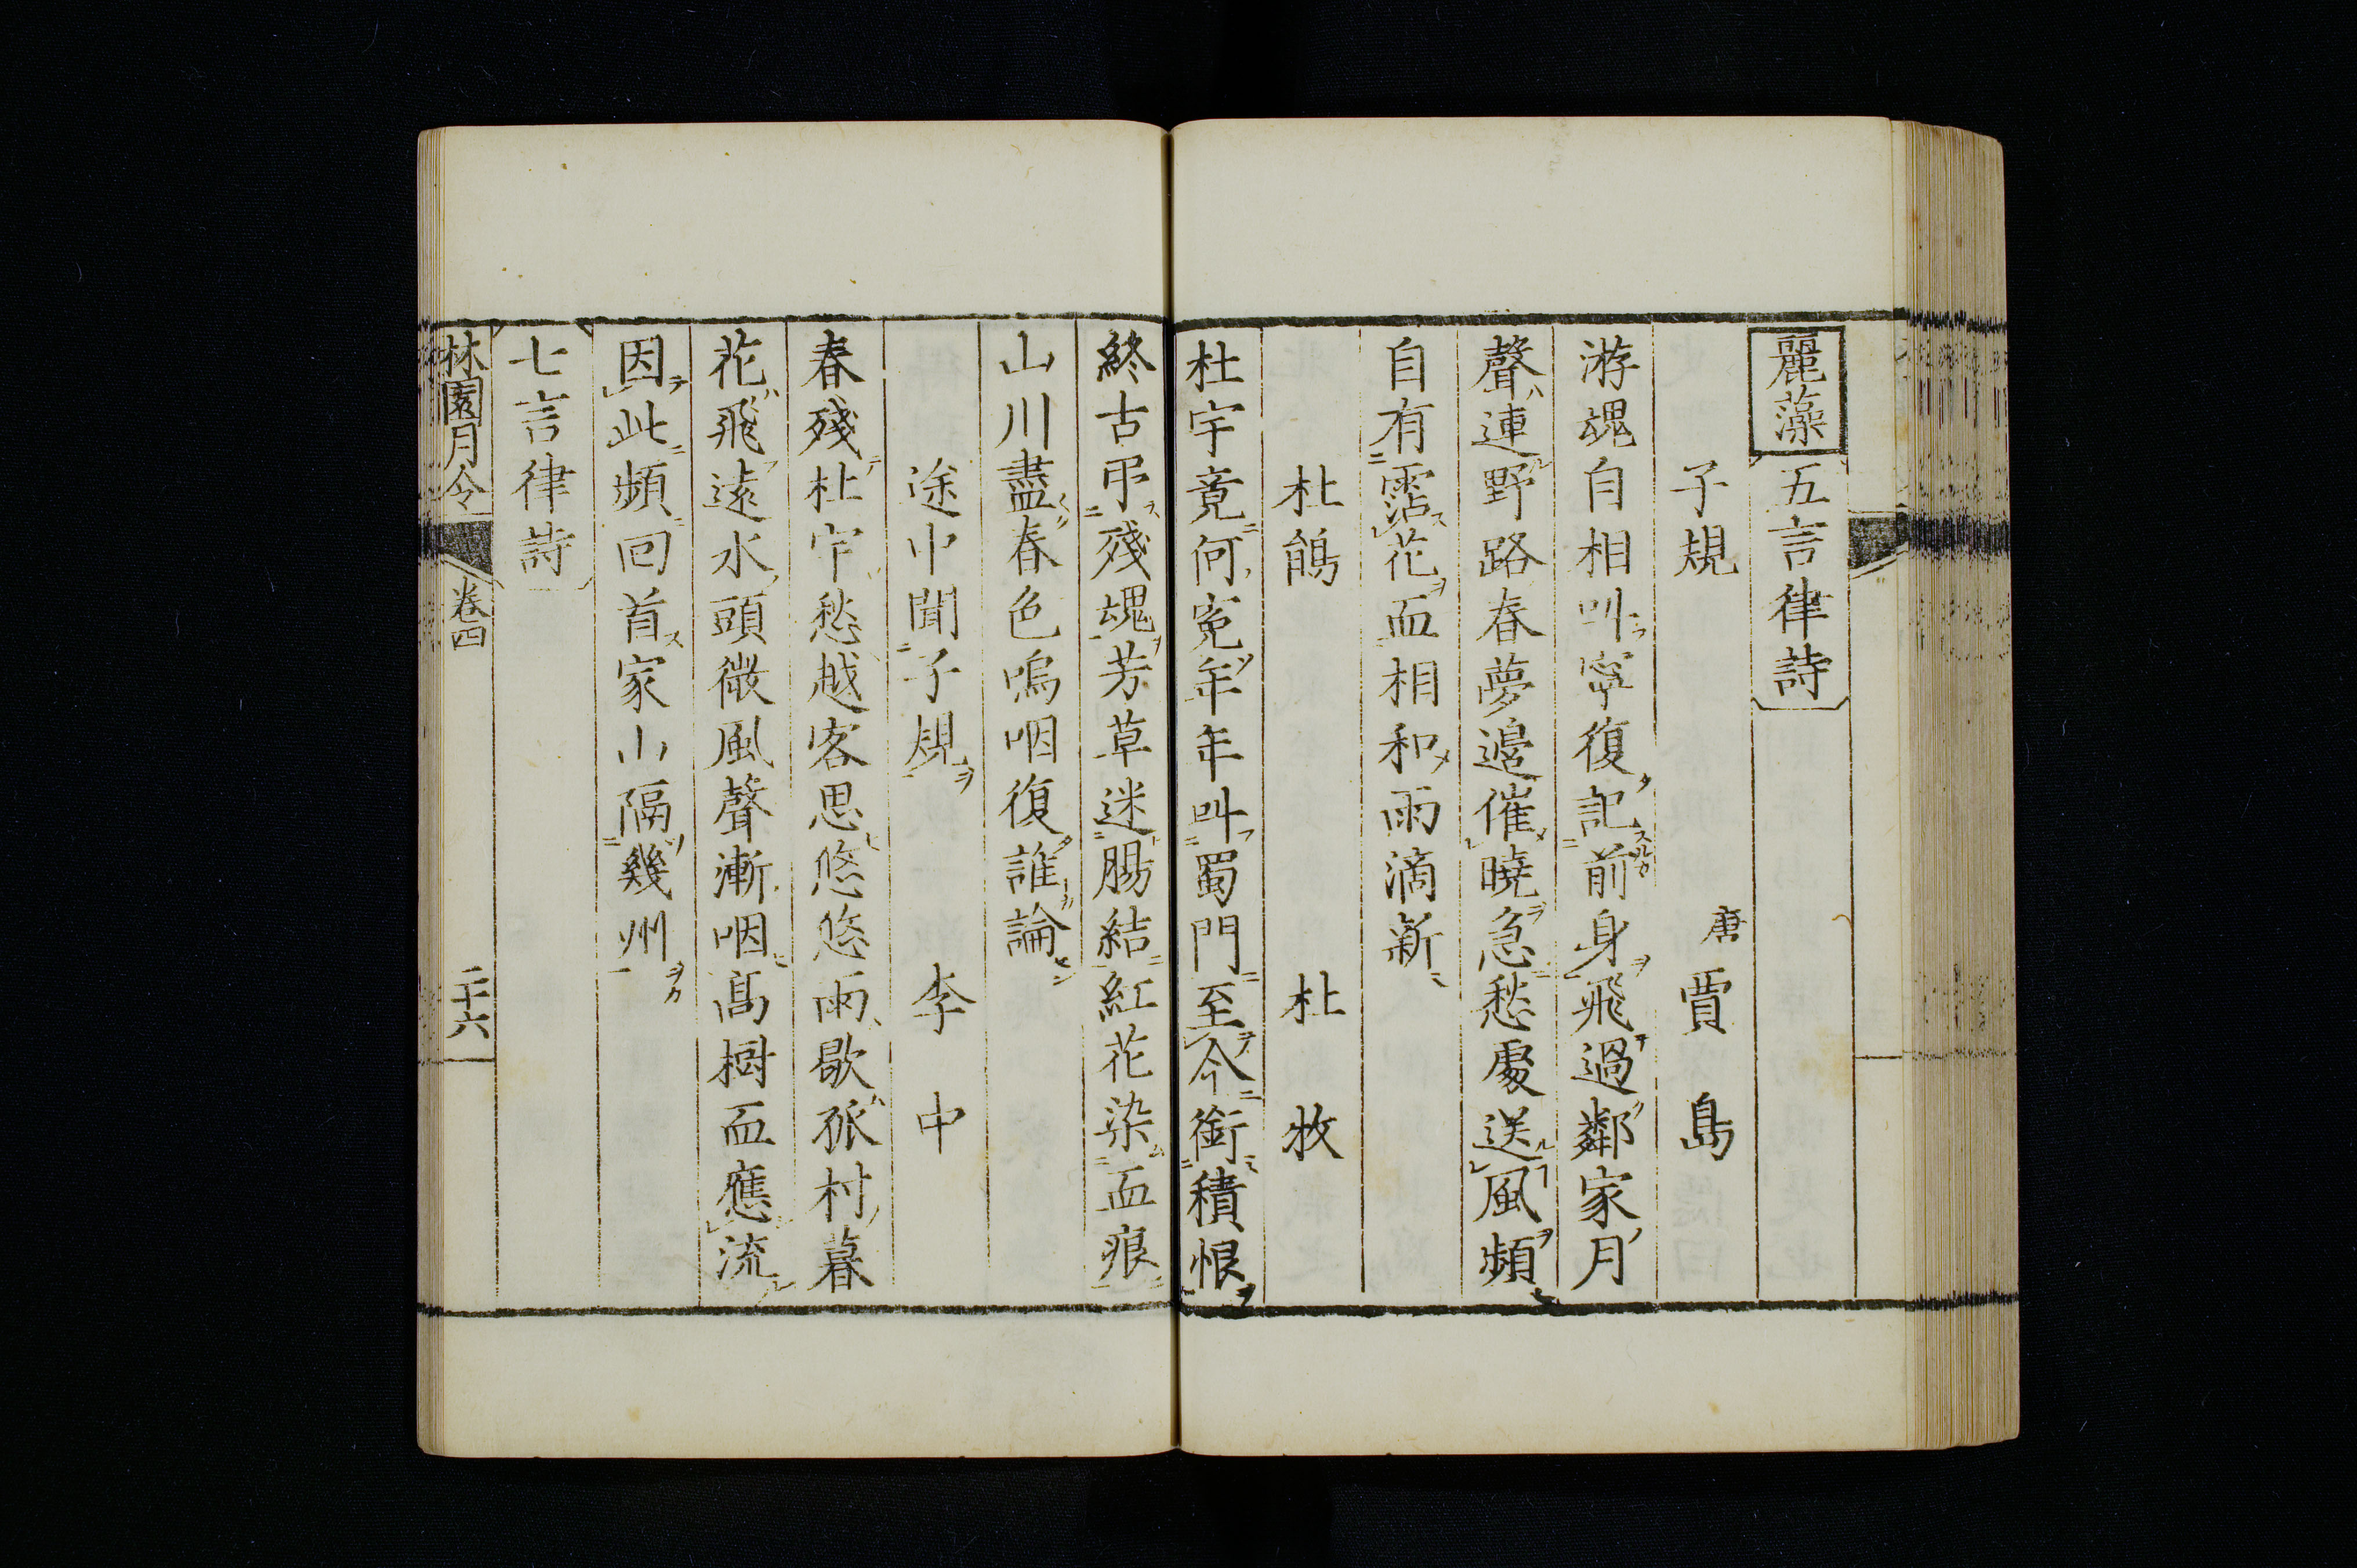 麗藻 五言律詩
子規 唐 賈島
游魂自相叫寧復記前身飛過鄰家月
聲連野路春夢邊催曉急愁處送風頻
自有霑花血相和雨滴新
杜鵑 杜牧
杜宇竟何冤年年叫蜀門至今銜積恨
終古弔殘魂芳草迷腸結紅花染血痕
山川盡春色嗚咽復誰論
途中聞子規 李中
春殘杜宇愁越客思悠悠雨歇孤村暮
花飛遠水頭微風聲漸咽高樹血應流
因此頻回首家山隔幾州
七言律詩
林園月令 卷四 二十六